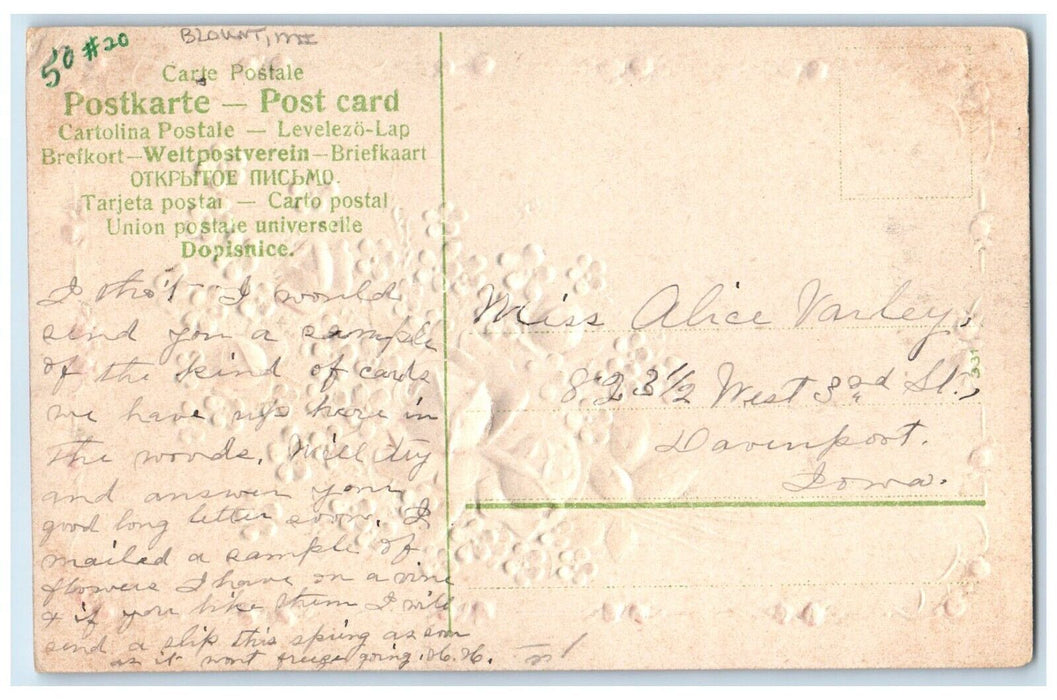 50 #20
BLOUNT,
Carte Postale
Postkarte — Post card
Cartolina Postale — Levelezö-Lap
Brefkort—Weltpostverein—Briefkaart
ОТКРЫТОЕ ПИСЬМО.
Tarjeta postal — Carto postal
Union postale universelle
Dopisnice.
I tho't I would
send you a sample
of the kind of cards
we have up here in
the woods. Will try
and answer your
good long letter soon. I
mailed a sample of
flowers I have on a vine
& if you like them I will
send a slip this spring as soon
as it wont freeze going. H. H.
Miss Alice Varley,
823 1/2 West 3rd St.,
Davenport.
Iowa.
331